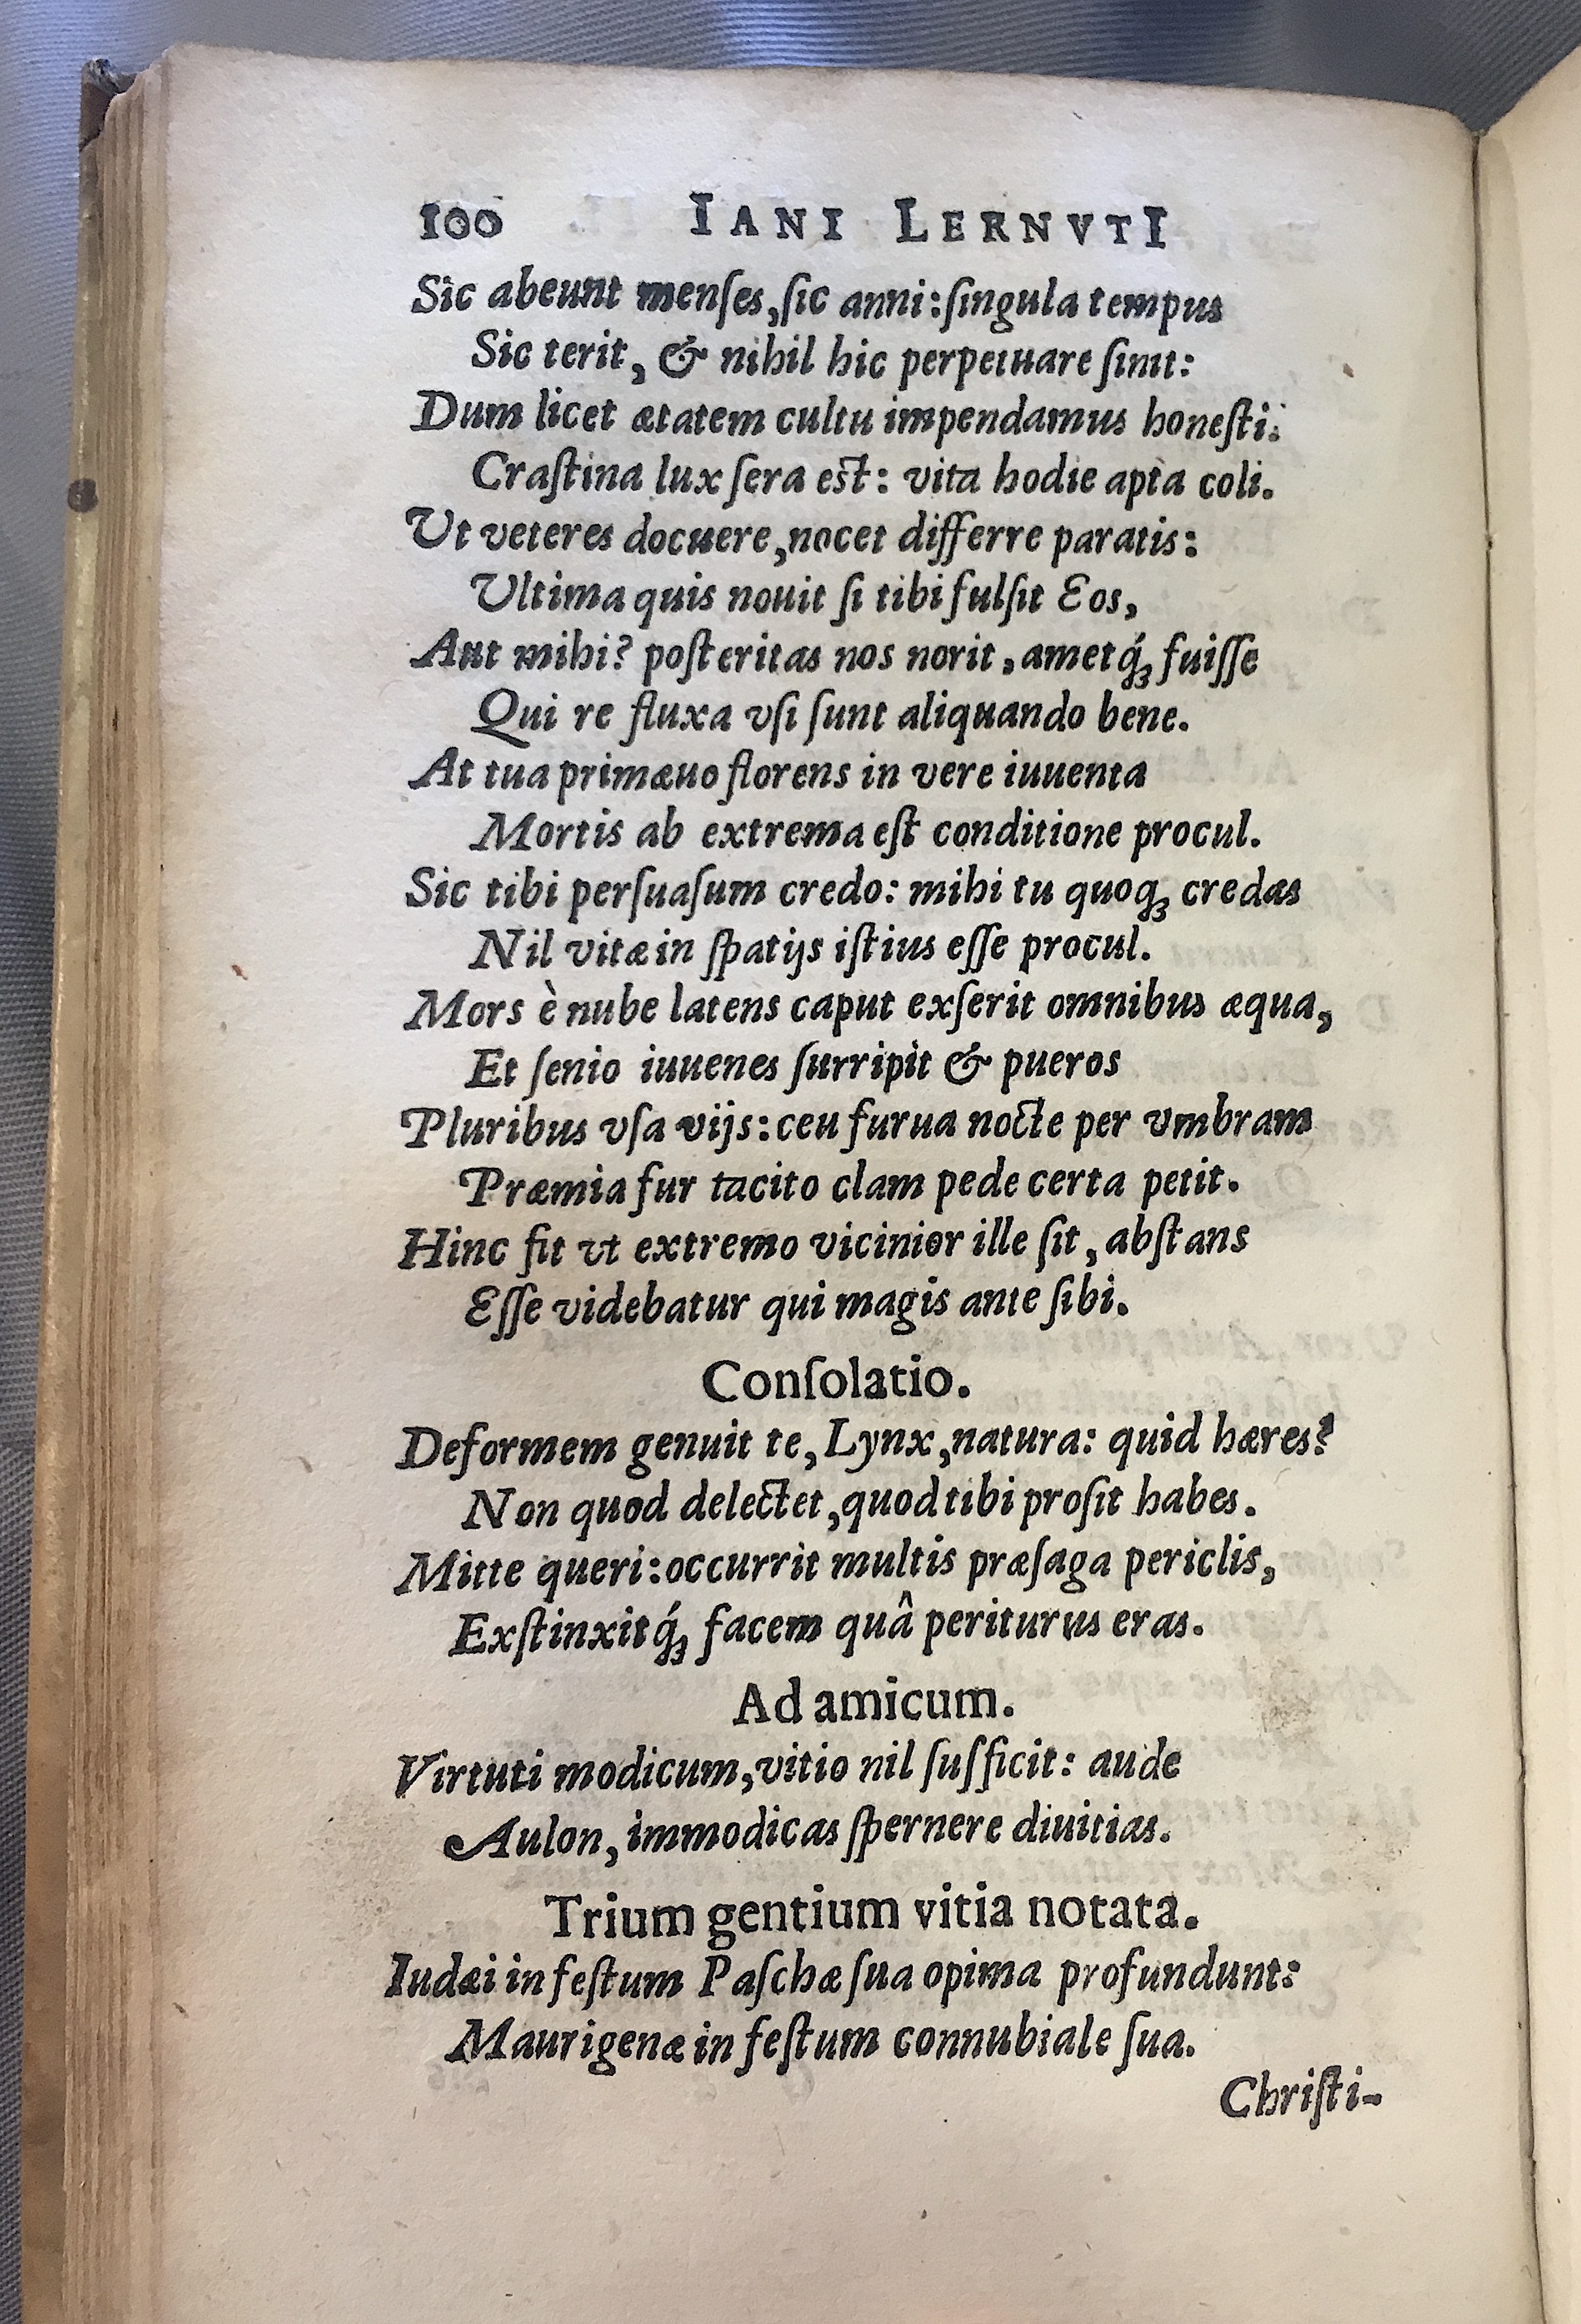 100 IANI LERNVTI
Sic abeunt menſes, ſic anni: ſingula tempus
Sic terit, & nihil hic perpetuare ſinit:
Dum licet ætatem cultu impendamus honeſti:
Craſtina lux ſera est: vita hodie apta coli.
Ut veteres docuere, nocet differre paratis:
Ultima quis nouit ſi tibi fulſit Eos,
Aut mihi? poſteritas nos norit, ametq́ꝫ fuiſſe
Qui re fluxa vſi ſunt aliquando bene.
At tua primæuo florens in vere iuuenta
Mortis ab extrema eſt conditione procul.
Sic tibi perſuaſum credo: mihi tu quoqꝫ credas
Nil vitæ in ſpatijs iſtius eſſe procul.
Mors è nube latens caput exſerit omnibus æqua,
Et ſenio iuuenes ſurripit & pueros
Pluribus vſa vijs: ceu furua nocte per vmbram
Præmia fur tacito clam pede certa petit.
Hinc fit vt extremo vicinior ille ſit, abſtans
Eſſe videbatur qui magis ante ſibi.
Conſolatio.
Deformem genuit te, Lynx, natura: quid hæres?
Non quod delectet, quod tibi proſit habes.
Mitte queri: occurrit multis præſaga periclis,
Exſtinxitq́ꝫ facem quâ periturus eras.
Ad amicum.
Virtuti modicum, vitio nil ſufficit: aude
Aulon, immodicas ſpernere diuitias.
Trium gentium vitia notata.
Iudæi in feſtum Paſchæ ſua opima profundunt:
Maurigenæ in feſtum connubiale ſua.
Chriſti-